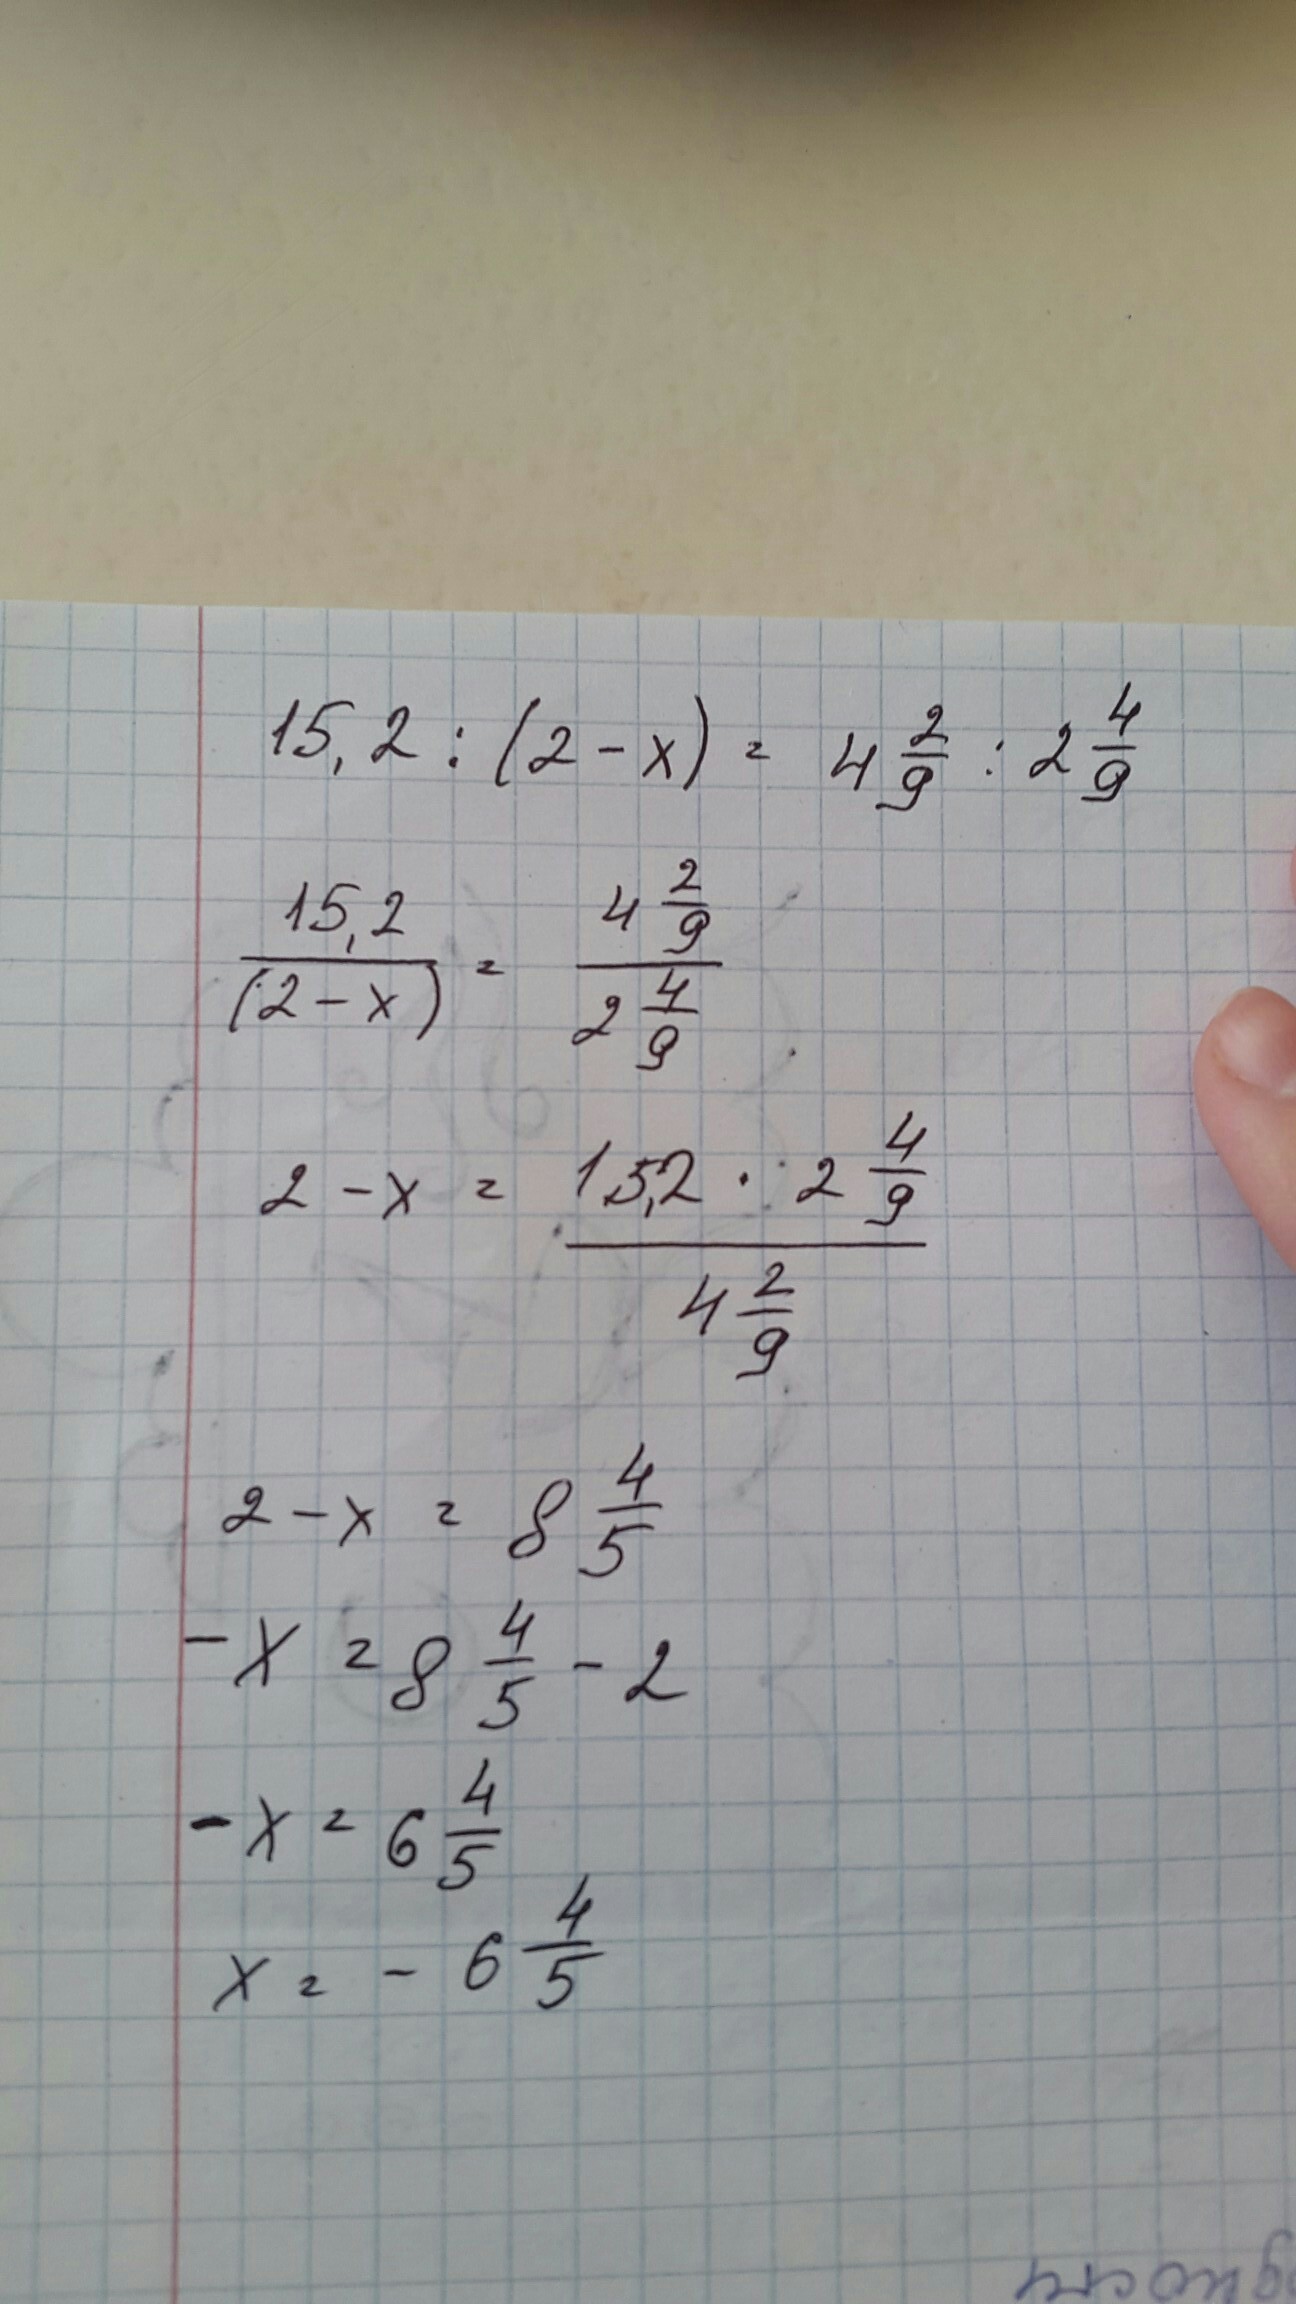 15,2 : (2 - x) = 4 2/9 : 2 4/9
15,2/(2 - x) = 4 2/9 / 2 4/9
2 - x = 15,2 · 2 4/9 / 4 2/9
2 - x = 8 4/5
- x = 8 4/5 - 2
- x = 6 4/5
x = - 6 4/5